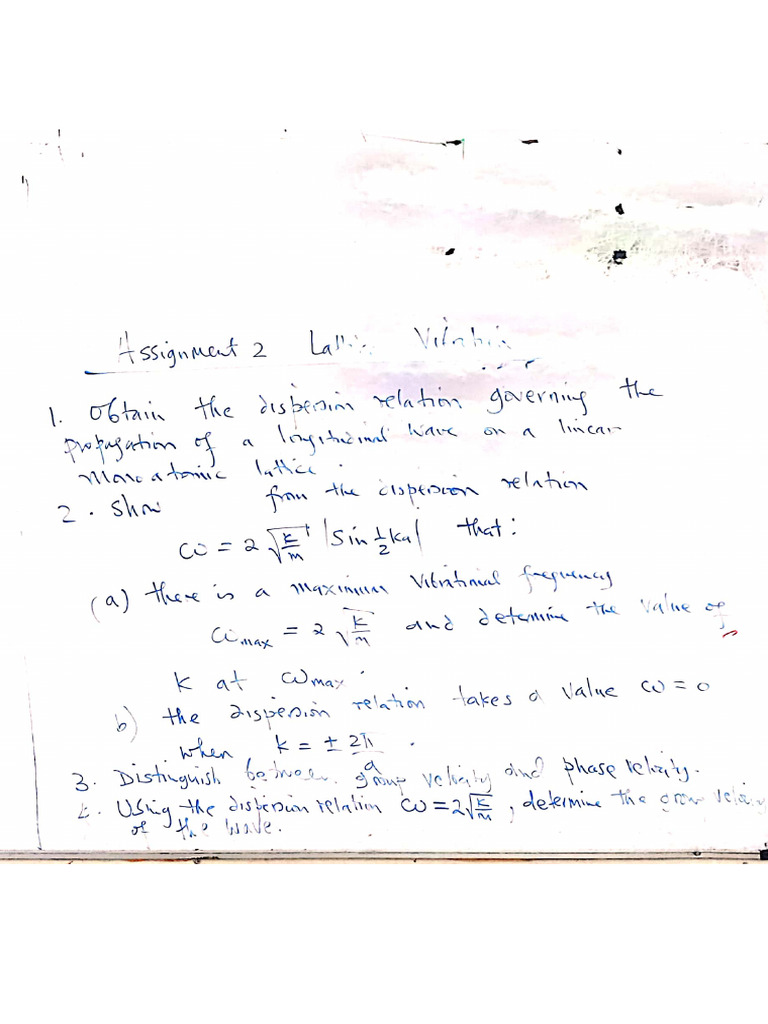 Assignment 2 Lattice Vibration
1. Obtain the dispersion relation governing the
propagation of a longitudinal wave on a linear
monoatomic lattice.
2. Show from the dispersion relation
ω = 2 √(K/m) |Sin ½ka| that:
(a) there is a maximum vibrational frequency
ωmax = 2 √(K/m) and determine the value of
K at ωmax.
b) the dispersion relation takes a value ω = 0
when k = ± 2π/a .
3. Distinguish between group velocity and phase velocity.
4. Using the dispersion relation ω = 2√(K/m), determine the group velocity
of the wave.